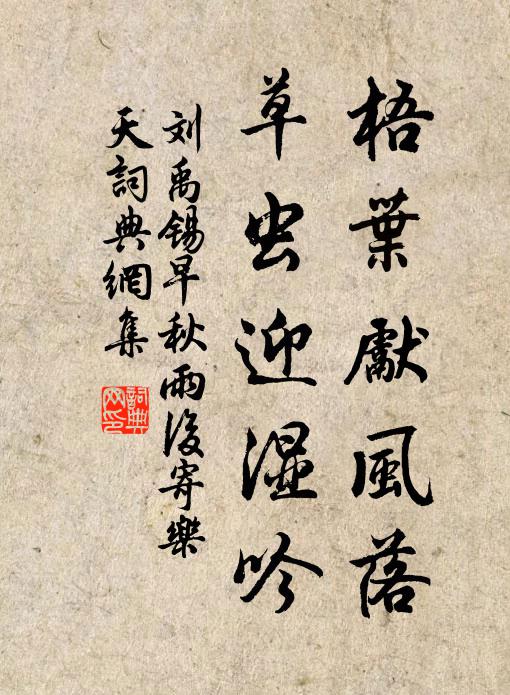 梧葉獻風落
草虫迎湿吟
刘禹錫早秋雨後寄樂
天詞典網集
詞典
网印